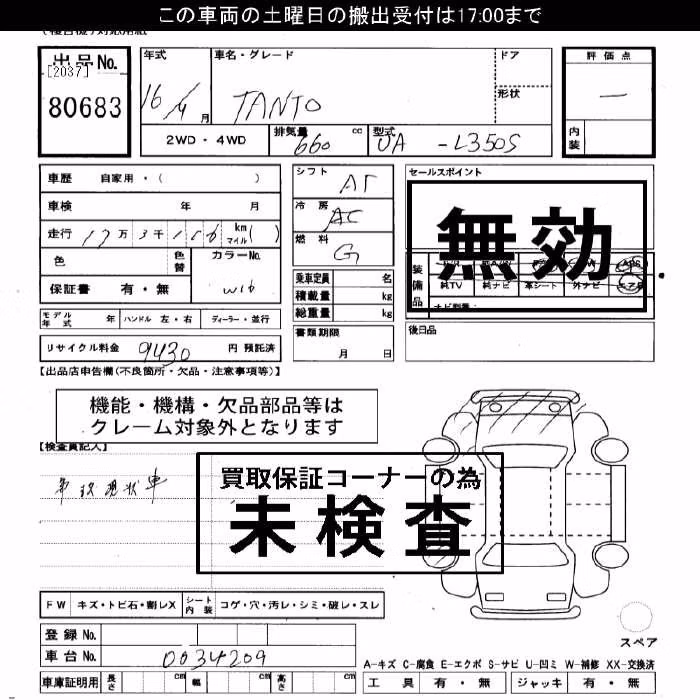 この車両の土曜日の搬出受付は17:00まで
出品No.
[2037]
80683
年式 16/4月
車名・グレード TANTO
ドア
形状
評価点
内装
2WD・4WD
排気量 660 cc
型式 UA -L350S
車歴 自家用・( )
車検 年 月
走行 17万3千 km マイル( )
色 色替 カラーNo. W16
保証書 有・無
シフト AT
冷房 AC
燃料 G
乗車定員 名
積載量 kg
総重量 kg
書類期限 月 日
セールスポイント
無効
装備品 純TV 純ナビ 革シート 外ナビ エアB
後日品
モデル年式 年 ハンドル 左・右 ディーラー・並行
リサイクル料金 9430 円 預託済
【出品店申告欄(不良箇所・欠品・注意事項等)】
機能・機構・欠品部品等は
クレーム対象外となります
【検査員記入】
現状車
買取保証コーナーの為
未検査
FW キズ・トビ石・割レX シート内装 コゲ・穴・汚レ・シミ・破レ・スレ
登録No.
車台No. 0034209
車庫証明用 長さ cm 幅 cm 高さ cm
スペア
A-キズ C-腐食 E-エクボ S-サビ U-凹ミ W-補修 XX-交換済
工具 有・無 ジャッキ 有・無